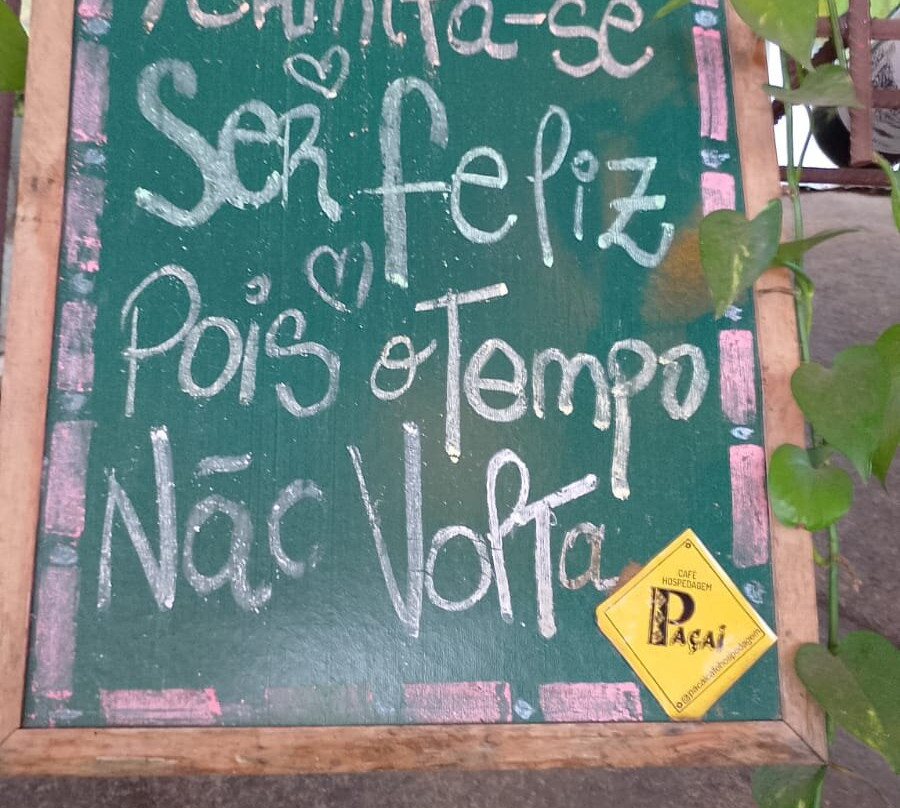 Permita-se
Ser feliz
Pois o Tempo
Não Volta
CAFÉ
HOSPEDAGEM
PAÇAÍ
@pacaicafehospedagem